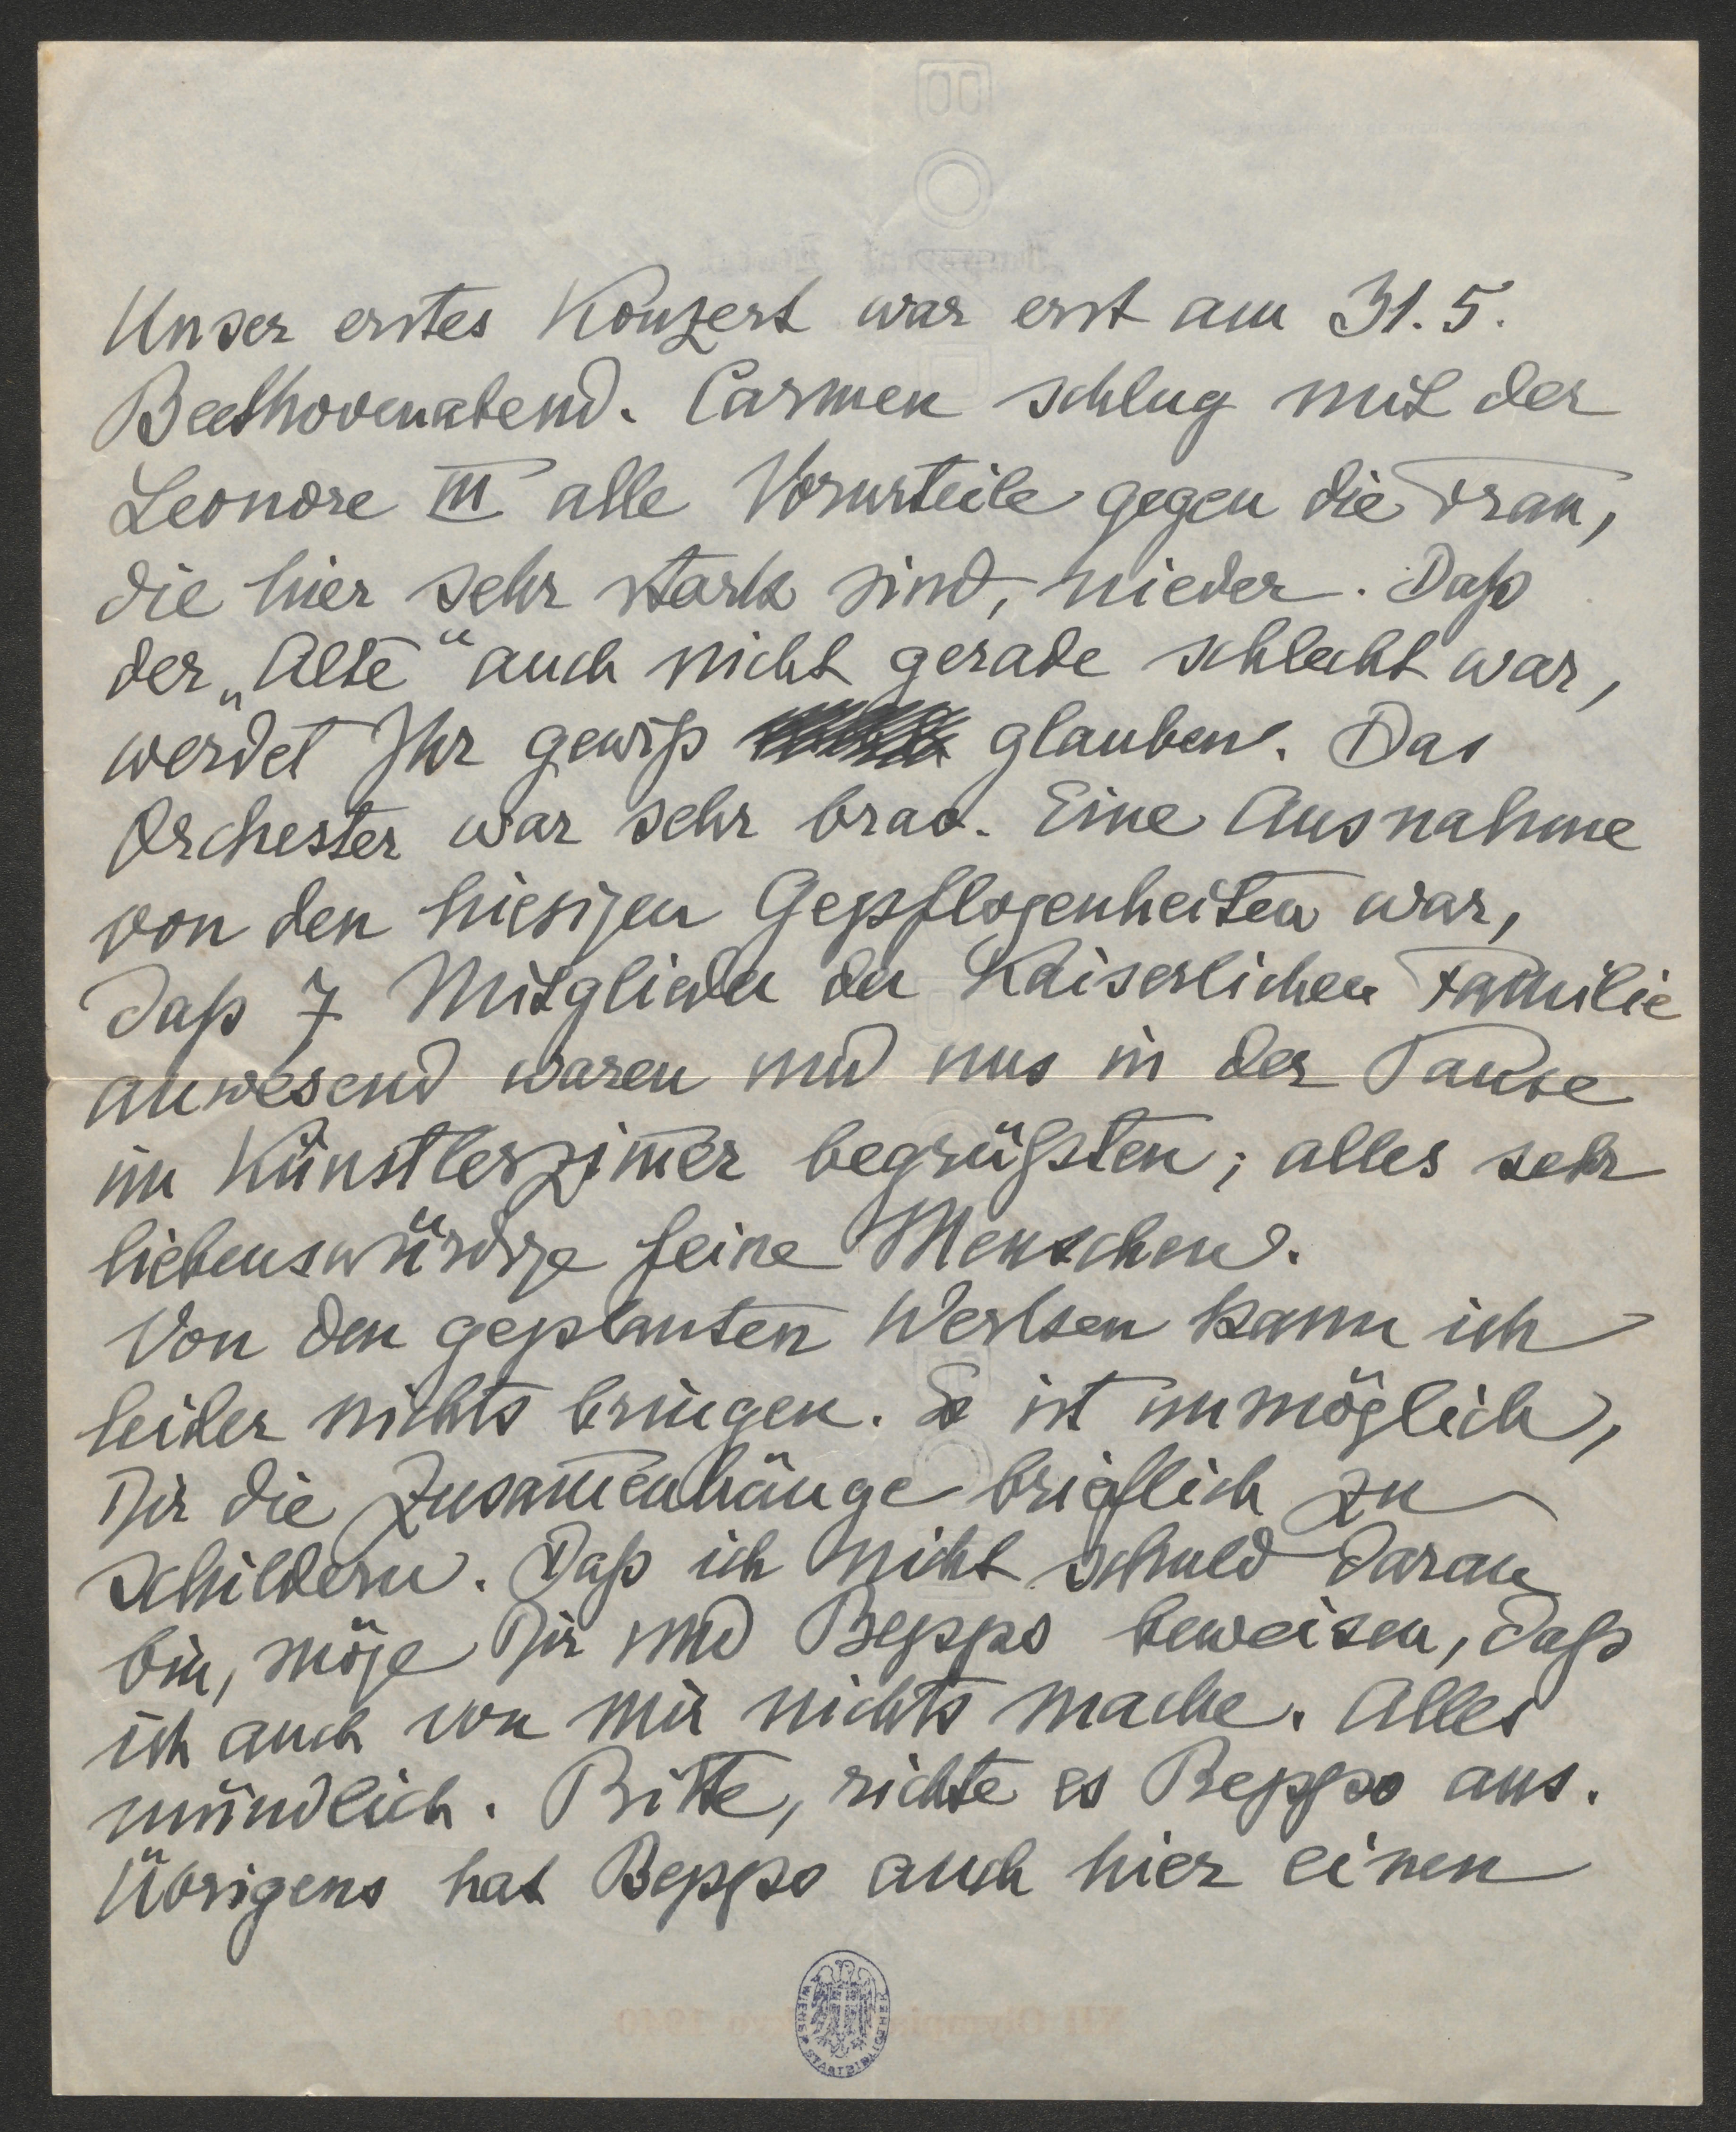 Unser erstes Konzert war erst am 31. 5.
Beethovenabend. Carmen schlug mit der
Leonore III alle Vorurteile gegen die Frau,
die hier sehr stark sind, nieder. Daß
der „Alte“ auch nicht gerade schlecht war,
werdet Ihr gewiß glauben. Das
Orchester war sehr brav. Eine Ausnahme
von den hiesigen Gepflogenheiten war,
daß 7 Mitglieder der Kaiserlichen Familie
anwesend waren und uns in der Pause
im Künstlerzim̅er begrüßten; alles sehr
liebenswürdige feine Menschen.
Von den geplanten Werken kann ich
leider nichts bringen. Es ist unmöglich,
Dir die Zusam̅enhänge brieflich zu
schildern. Daß ich nicht schuld daran
bin, möge Dir und Beppo beweisen, daß
ich auch von mir nichts mache. Alles
mündlich. Bitte, richte es Beppo aus.
Übrigens hat Beppo auch hier einen
WIENER STADTBIBLIOTHEK